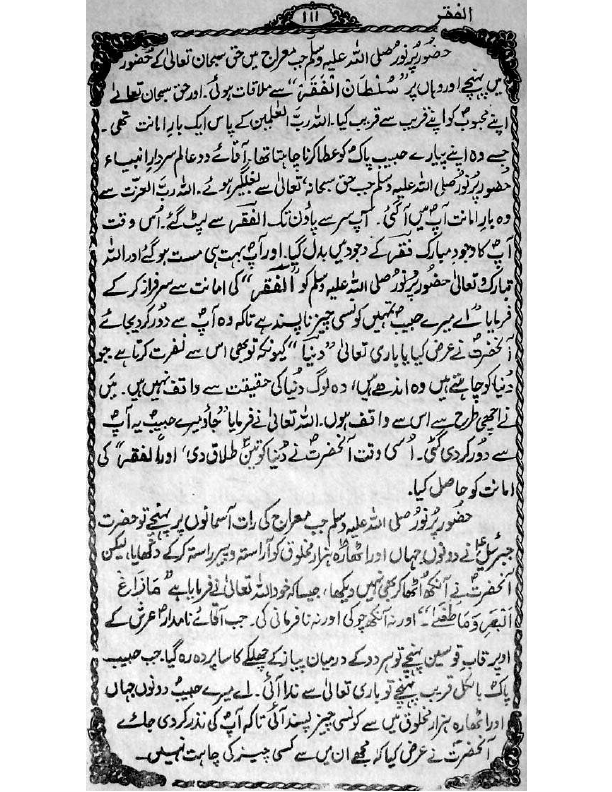 الفقر
۱۱۱
حضور پر نور صلی اللہ علیہ وسلم جب معراج میں حق سبحان تعالیٰ کے حضور
میں پہنچے اور وہاں پر "سُلْطَانُ الْفَقْرْ" سے ملاقات ہوئی۔ اور حق سبحان تعالےٰ
اپنے محبوبؐ کو اپنے قریب سے قریب کیا۔ اللہ ربّ العٰلمین کے پاس ایک بارِ امانت تھی۔
جسے وہ اپنے پیارے حبیب پاکؐ کو عطا کرنا چاہتا تھا۔ آقائے دو عالم سردارِ انبیاء
حضور پُر نور صلی اللہ علیہ وسلم جب حق سبحانہٗ تعالیٰ سے بغلگیر ہوئے۔ اللہ ربّ العزت سے
وہ بارِ امانت آپؐ میں آ گئی۔ آپ سر سے پاؤں تک الفقر سے لپٹ گئے۔ اُس وقت
آپؐ کا وجود مبارک فقر کے وجود میں بدل گیا۔ اور آپؐ بہت ہی مست ہو گئے اور اللہ
تبارک و تعالیٰ حضور پُر نور صلی اللہ علیہ وسلم کو "الفقر" کی امانت سے سرفراز کر کے
فرمایا "اے میرے حبیبؐ تمہیں کونسی چیز ناپسند ہے تاکہ وہ آپؐ سے دُور کر دی جائے
آنحضرتؐ نے عرض کیا یا باری تعالیٰ "دنیا" کیونکہ تو بھی اس سے نفرت کرتا ہے جو
دُنیا کو چاہتے ہیں وہ اندھے ہیں، وہ لوگ دُنیا کی حقیقت سے واقف نہیں ہیں۔ میں
نے اچھی طرح سے اس سے واقف ہوں۔ اللہ تعالیٰ نے فرمایا "جاؤ میرے حبیبؐ یہ آپؐ
سے دُور کر دی گئی۔ اُسی وقت آنحضرتؐ نے دُنیا کو تین طلاق دی، اور "الفقر" کی
امانت کو حاصل کیا۔
حضور پُر نور صلی اللہ علیہ وسلم جب معراج کی رات آسمانوں پر پہنچے تو حضرت
جبرئیلؑ نے دونوں جہاں اور اٹھارہ ہزار مخلوق کو آراستہ و پیراستہ کر کے دکھایا، لیکن
آنحضرتؐ نے آنکھ اُٹھا کر بھی نہیں دیکھا، جیسا کہ خود اللہ تعالیٰ نے فرمایا ہے "مَا زَاغَ
الْبَصَرُ وَمَا طَغٰے"۔ اور نہ آنکھ چوکی اور نہ نافرمانی کی۔ جب آقائے نامدارؐ عرش کے
اوپر قاب قوسین پہنچے تو ہر دو کے درمیان پیاز کے چھلکے کا سا پردہ رہ گیا۔ جب حبیب
پاکؐ بالکل قریب پہنچے تو باری تعالیٰ سے ندا آئی۔ اے میرے حبیبؐ دونوں جہاں
اور اٹھارہ ہزار مخلوق میں سے کونسی چیز پسند آئی تاکہ آپؐ کی نذر کر دی جائے
آنحضرتؐ نے عرض کیا کہ مجھے ان میں سے کسی چیز کی چاہت نہیں۔